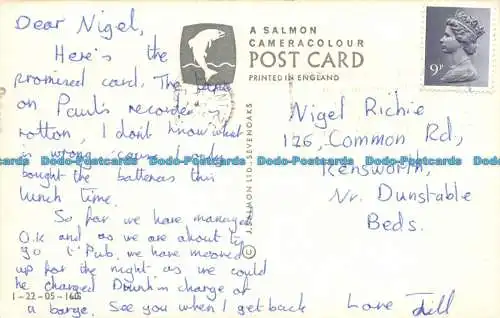 Dear Nigel,
Here's the
promised card. The
on Paul's recorder
rotten I don't know what
is wrong 'cause I only
bought the batteries this
lunch time.
So far we have managed
O.K and as we are about to
go t' Pub, we have moored
up for the night as we could
be charged Drunk in charge of
a barge. See you when I get back
Love Jill
A SALMON
CAMERACOLOUR
POST CARD
PRINTED IN ENGLAND
© J. SALMON LTD · SEVENOAKS
9P
Nigel Richie
126, Common Rd,
Kensworth,
Nr. Dunstable
Beds.
1-22-05-16
Dodo-Postcards Dodo-Postcards Dodo-Postcards Dodo-Postcards
Dodo-Postcards Dodo-Postcards Dodo-Postcards